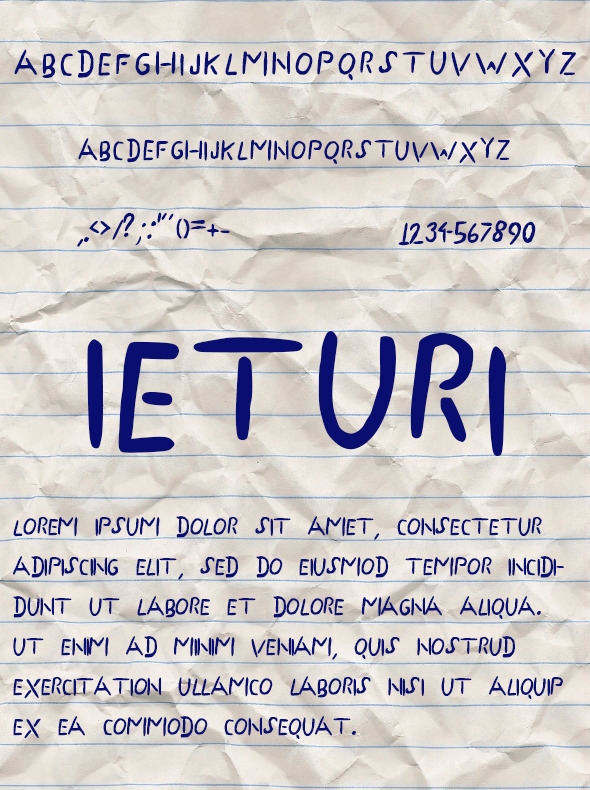 ABCDEFGHIJKLMNOPQRSTUVWXYZ
ABCDEFGHIJKLMNOPQRSTUVWXYZ
,.<>/?;:"'()=+- 1234567890
IETURI
LOREM IPSUM DOLOR SIT AMET, CONSECTETUR
ADIPISCING ELIT, SED DO EIUSMOD TEMPOR INCIDI-
DUNT UT LABORE ET DOLORE MAGNA ALIQUA.
UT ENIM AD MINIM VENIAM, QUIS NOSTRUD
EXERCITATION ULLAMCO LABORIS NISI UT ALIQUIP
EX EA COMMODO CONSEQUAT.